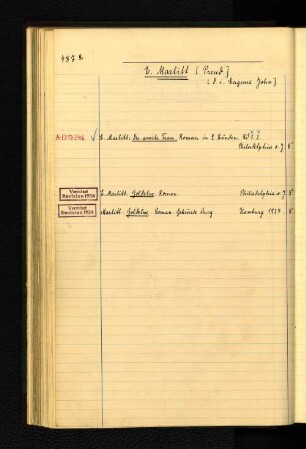 487 a
E. Marlitt [Pseud.]
[d. i. Eugenie John]
E. Marlitt: Die zweite Frau. Roman in 2 Bänden. Bd 1. 2.
Philadelphia o. J. 8°
Vermisst
Revision 1934
E. Marlitt: Goldelse. Roman. Philadelphia o. J. 8°
Vermisst
Revision 1934
Marlitt: Goldelse. Roman. Hamburg 8°